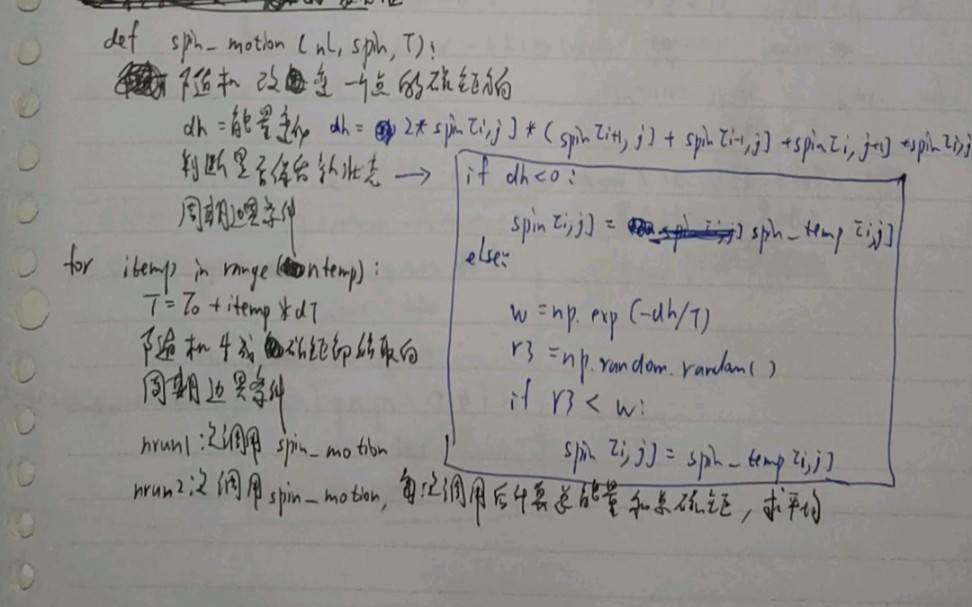 def spin_motion(nl, spin, T):
随机改变一点的磁矩朝向
dh = 能量变化 dh = 2* spin[i,j] * (spin[i+1, j] + spin[i-1, j] + spin[i, j+1] + spin[i,j
判断是否保留新状态 →
周期边界条件
if dh<0:
spin[i,j] = spin_temp[i,j]
else:
w = np.exp(-dh/T)
r3 = np.random.random()
if r3 < w:
spin[i,j] = spin_temp[i,j]
for itemp in range(ntemp):
T = T0 + itemp * dT
随机生成磁矩初始取向
周期边界条件
nrun1次调用 spin_motion
nrun2次调用spin_motion, 每次调用后计算总能量和总磁矩, 求平均